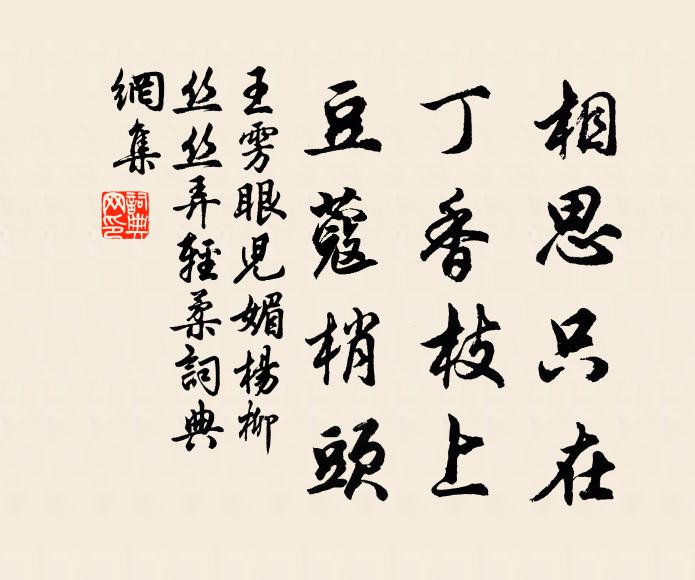 相思只在
丁香枝上
豆蔻梢頭
王雱眼児媚楊柳
丝丝弄輕柔詞典
網集
詞典
网印